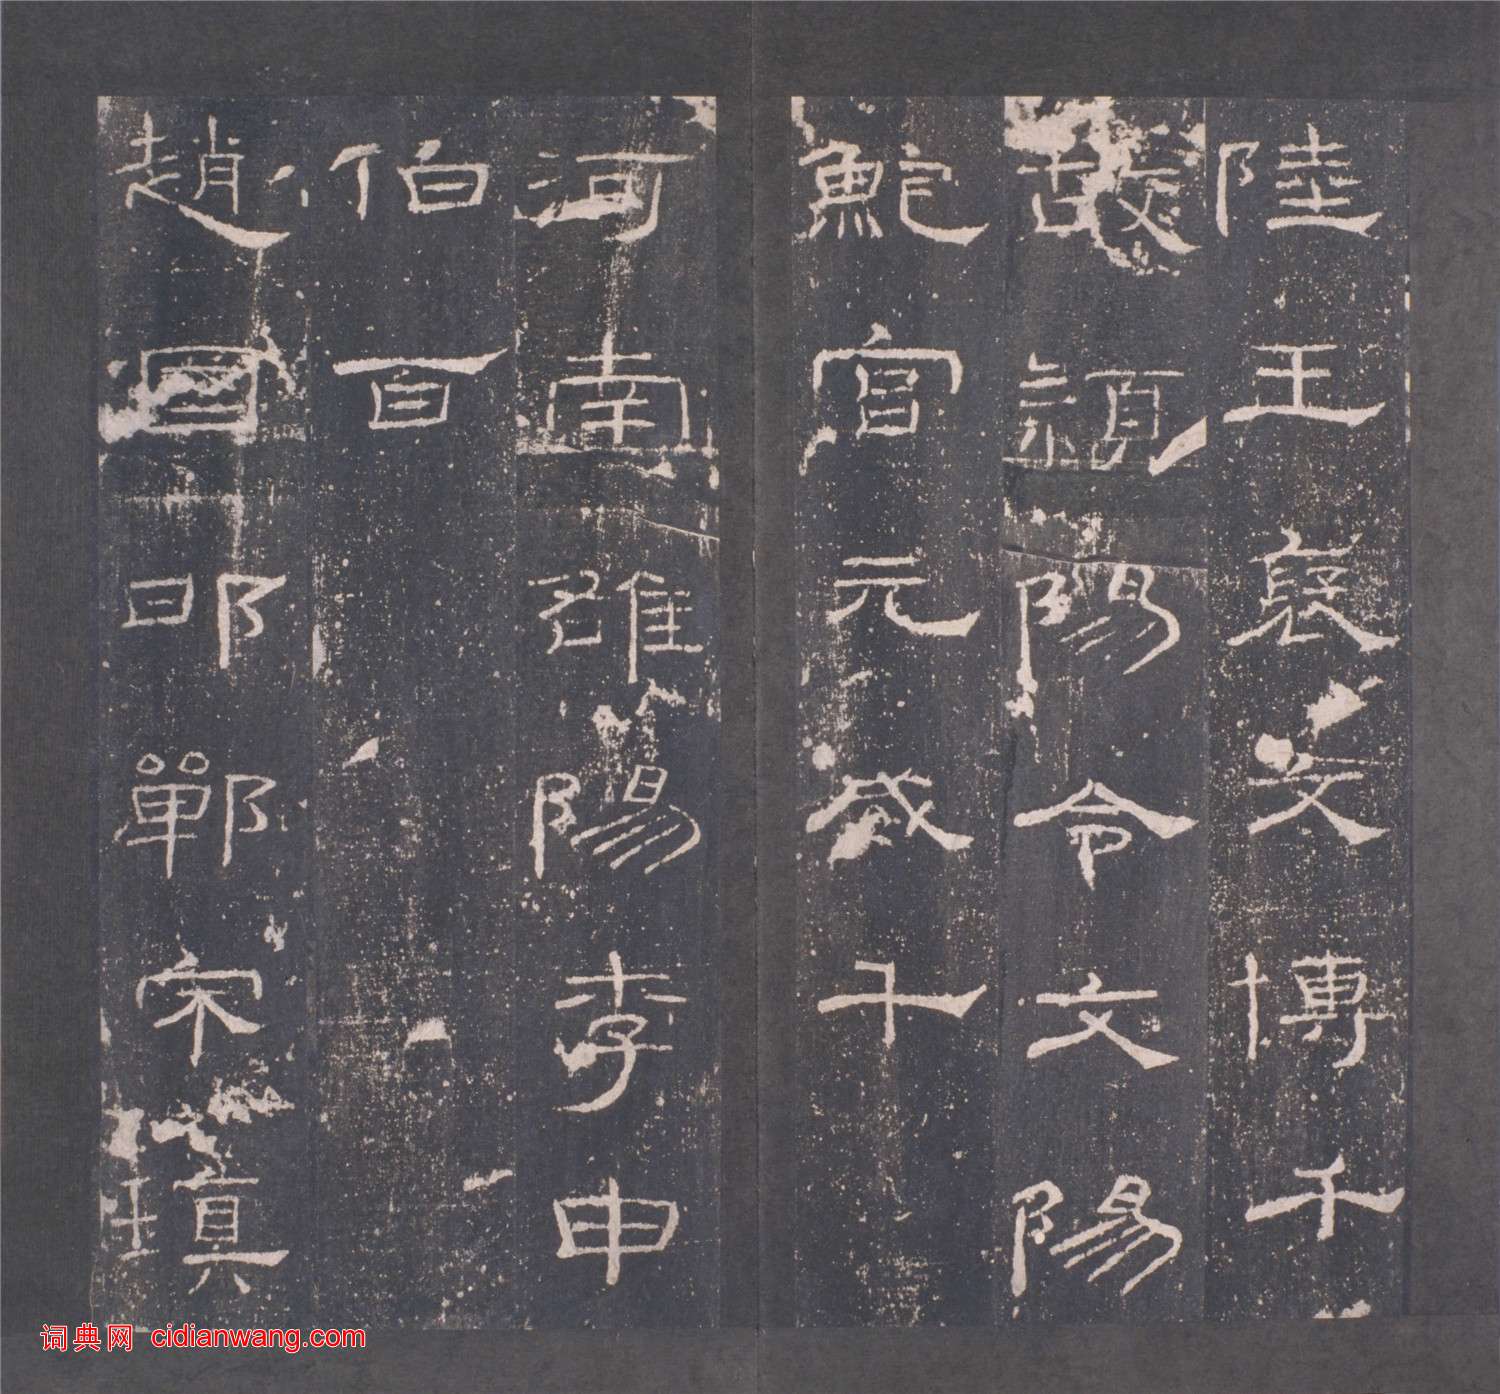 陸王襃文博千
故潁陽令文陽
鮑宮元威千
河南雒陽李申
伯百
趙國邯鄲宋瑱
词典网 cidianwang.com